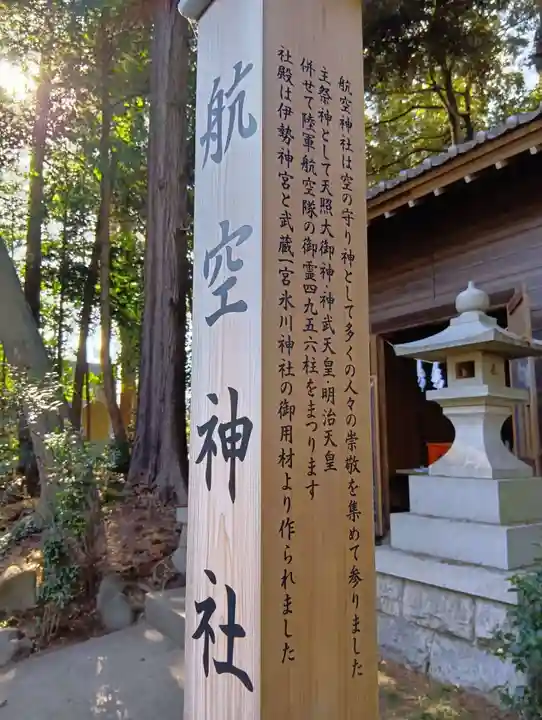 航空神社
航空神社は空の守り神として多くの人々の崇敬を集めて参りました
主祭神として天照大御神・神武天皇・明治天皇
併せて陸軍航空隊の御霊四九五六柱をまつります
社殿は伊勢神宮と武蔵一宮氷川神社の御用材より作られました